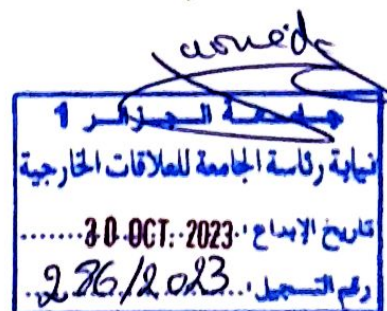 جامعة الجزائر 1
نيابة رئاسة الجامعة للعلاقات الخارجية
تاريخ الإيداع: 30 OCT. 2023
رقم التسجيل: 286/2023